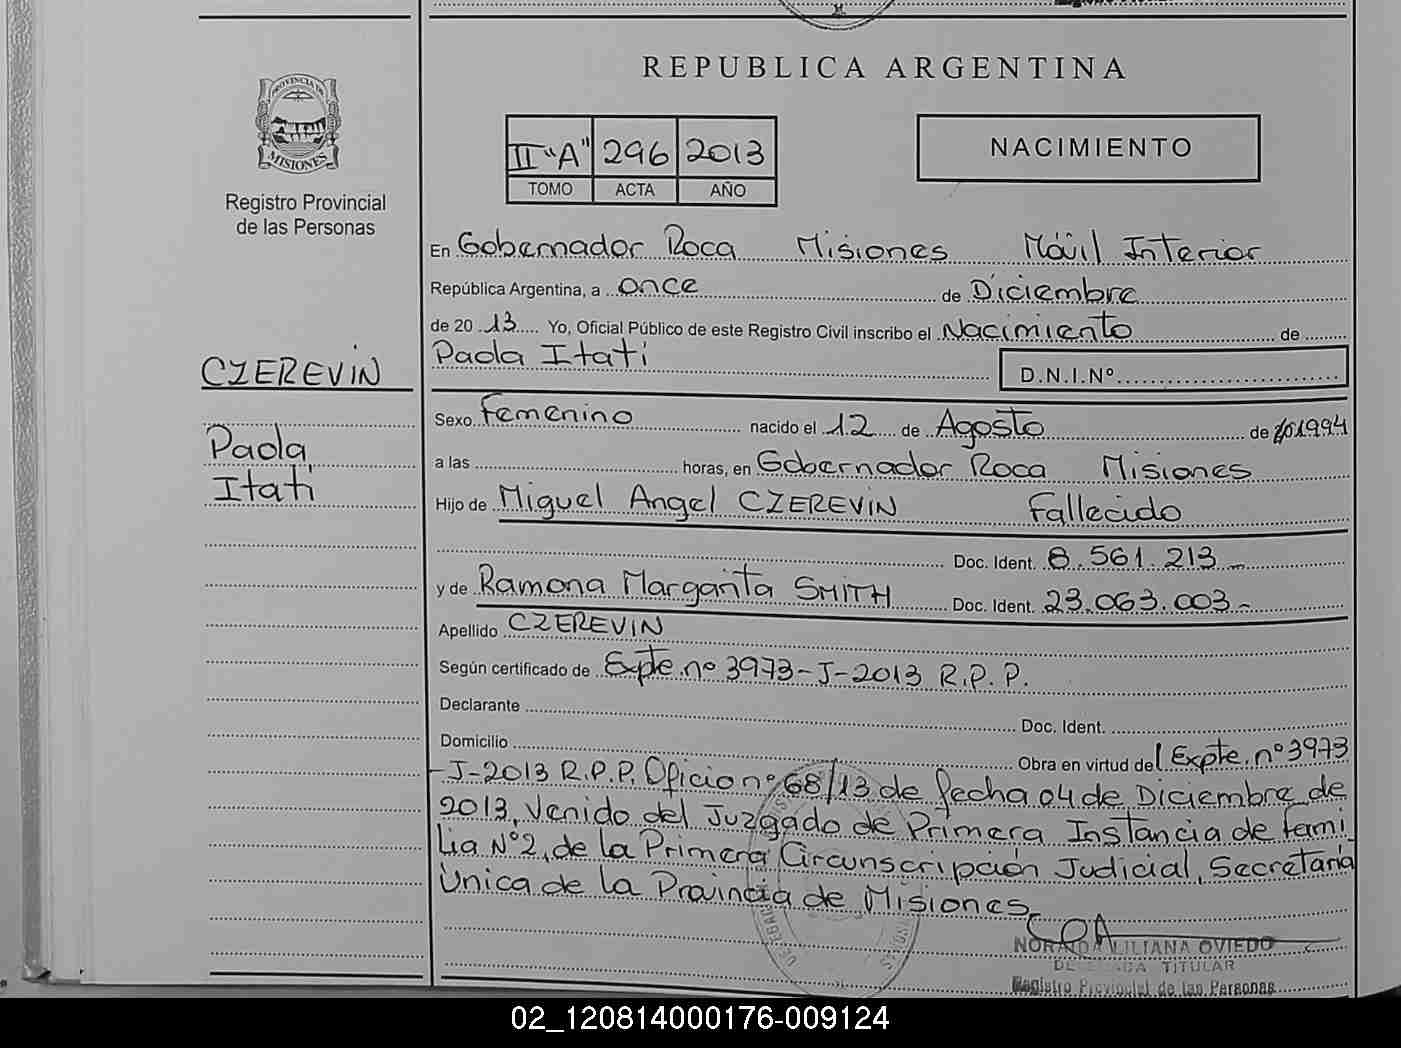 REPUBLICA ARGENTINA
PROVINCIA DE
MISIONES
Registro Provincial
de las Personas
II "A" 296 2013
TOMO ACTA AÑO
NACIMIENTO
En Gobernador Roca Misiones Móvil Interior
República Argentina, a once de Diciembre
de 20 13 Yo, Oficial Público de este Registro Civil inscribo el Nacimiento de
Paola Itatí
D.N.I.Nº
CZEREVIN
Paola
Itatí
Sexo Femenino nacido el 12 de Agosto de 1994
a las horas, en Gobernador Roca Misiones
Hijo de Miguel Angel CZEREVIN Fallecido
Doc. Ident. 8.561.213
y de Ramona Margarita SMITH Doc. Ident. 23.063.003-
Apellido CZEREVIN
Según certificado de Expte. nº 3973-J-2013 R.P.P.
Declarante Doc. Ident.
Domicilio Obra en virtud del Expte. nº 3973
-J-2013 R.P.P. Oficio nº 68/13 de fecha 04 de Diciembre de
2013, Venido del Juzgado de Primera Instancia de Fami
lia Nº2, de la Primera Circunscripción Judicial, Secretaría
Única de la Provincia de Misiones.
NORAIDA LILIANA OVIEDO
DELEGADA TITULAR
Registro Provincial de las Personas
02_120814000176-009124